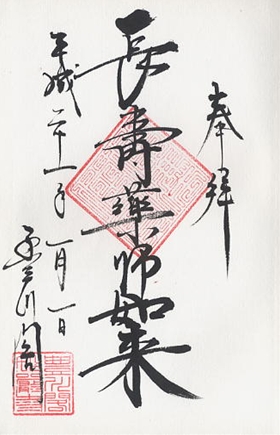 奉拝
長壽薬師如来
平成二十一年一月一日
豊川閣